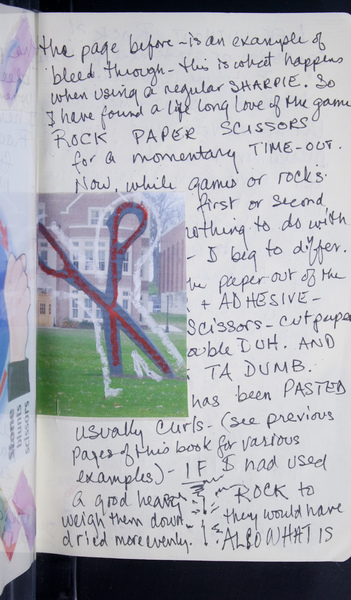 the page before - is an example of
bleed through - this is what happens
when using a regular SHARPIE. So
I have found a life long love of the game
ROCK PAPER SCISSORS
for a momentary TIME-OUT.
Now, while games or rocks
first or second
nothing to do with
- I beg to differ.
paper out of the
+ ADHESIVE -
Scissors - cut paper
DUH. AND
TA DUMB.
has been PASTED
usually curls - (see previous
pages of this book for various
examples) - IF I had used
a good heavy ROCK to
weigh them down they would have
dried more evenly. ALSO WHAT IS
Stone
blunts
scissors